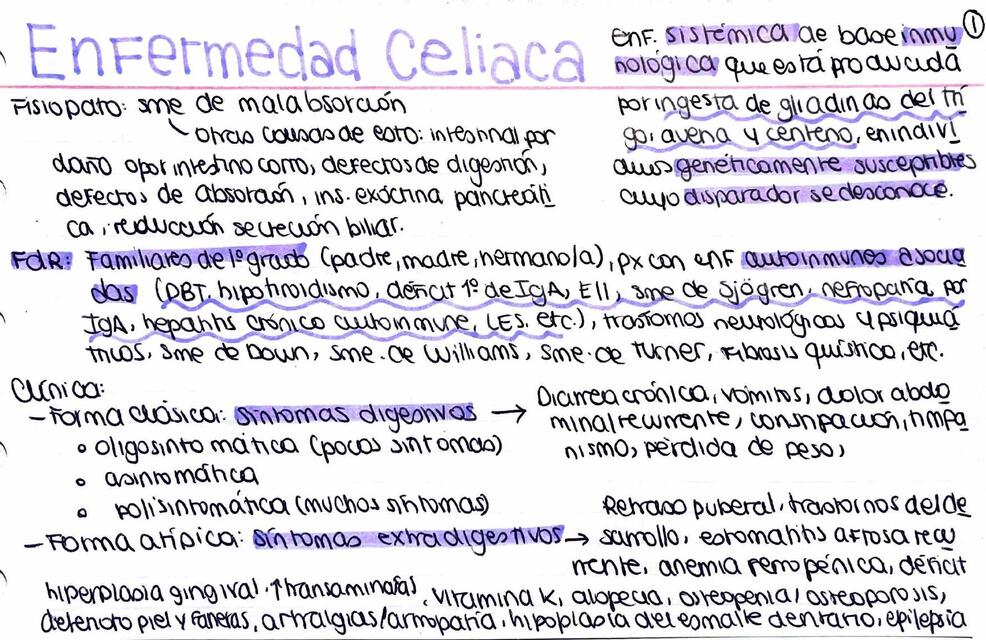 Enfermedad Celiaca
①
enf. sistémica de base inmu
nológica que está producida
por ingesta de gliadinas del tri
go, avena y centeno, en indivi
duos genéticamente susceptibles
cuyo disparador se desconoce.
Fisiopato: sme de malabsorción
otras causas de esto: intestinal por
daño o por intestino corto, defectos de digestión,
defectos de absorción, ins. exócrina pancreáti
ca, reducción secreción biliar.
FdR: Familiares de 1º grado (padre, madre, hermano/a), px con enf autoinmunes asocia
das (DBT, hipotiroidismo, déficit 1º de IgA, EII, sme de Sjögren, nefropatía por
IgA, hepatitis crónica autoinmune, LES. etc.), trastornos neurológicos y psiquiá
tricos, sme de Down, sme. de Williams, sme. de Turner, Fibrosis quística, etc.
Clínica:
- Forma clásica: síntomas digestivos → Diarrea crónica, vómitos, dolor abdo
minal recurrente, constipación, timpa
nismo, pérdida de peso,
• oligosintomática (pocos síntomas)
• asintomática
• polisintomática (muchos síntomas)
- Forma atípica: síntomas extradigestivos → Retraso puberal, trastornos del de
sarrollo, estomatitis aftosa recu
rrente, anemia ferropénica, déficit
hiperplasia gingival, ↑ transaminasas, vitamina K, alopecia, osteopenia/osteoporosis,
piel y faneras, artralgias/artropatía, hipoplasia del esmalte dentario, epilepsia